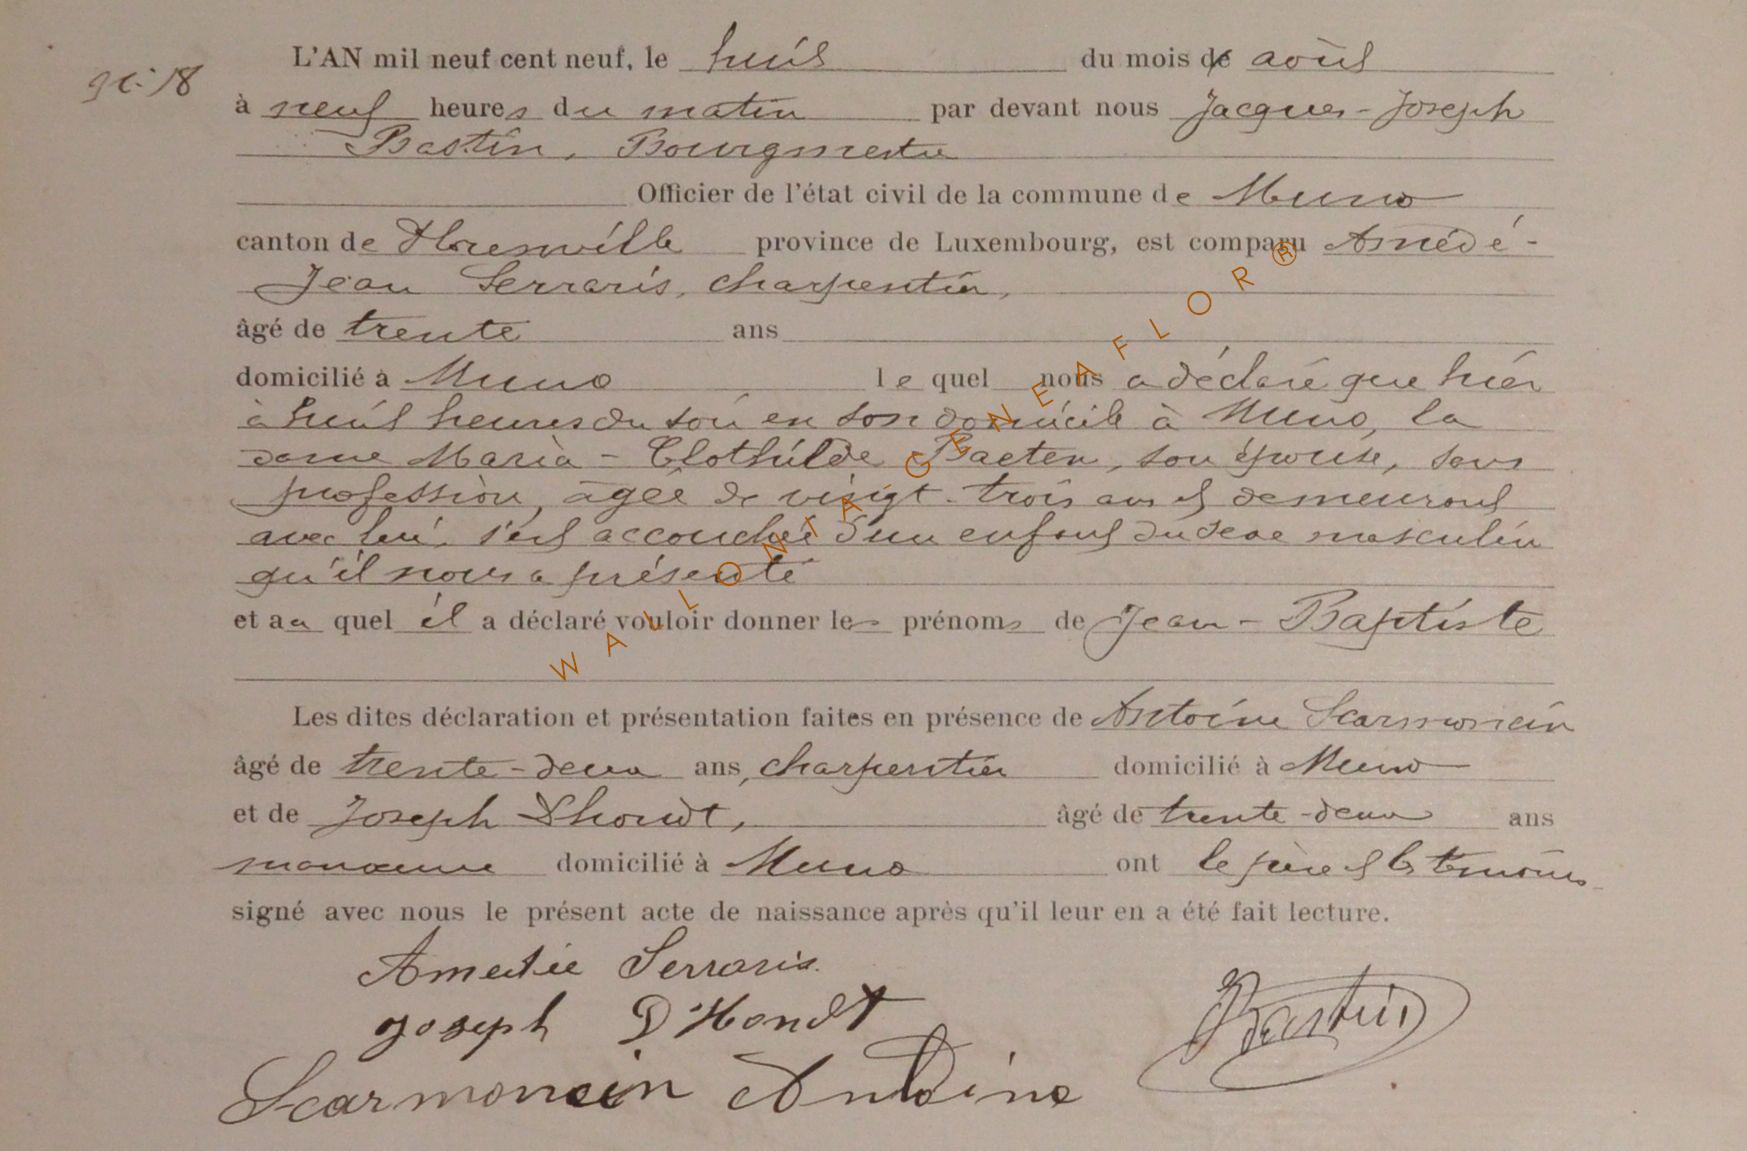 L'AN mil neuf cent neuf, le huit du mois de août
à neuf heures du matin par devant nous Jacques-Joseph
Bastin, Bourgmestre
Officier de l'état civil de la commune de Muno
canton de Florenville province de Luxembourg, est comparu Amédé-
Jean Serraris, charpentier,
âgé de trente ans
domicilié à Muno lequel nous a déclaré que hier
à huit heures du soir en son domicile à Muno, la
dame Maria-Clothilde Baeten, son épouse, sans
profession, âgée de vingt-trois ans et demeurant
avec lui, s'est accouchée d'un enfant du sexe masculin
qu'il nous a présenté
et au quel il a déclaré vouloir donner les prénoms de Jean-Baptiste
Les dites déclaration et présentation faites en présence de Antoine Scarmoncin
âgé de trente-deux ans, charpentier domicilié à Muno
et de Joseph Dhondt, âgé de trente-deux ans
domicilié à Muno ont le père et les témoins
signé avec nous le présent acte de naissance après qu'il leur en a été fait lecture.
Amedée Serraris
Joseph D'Hondt
Bastin
Scarmoncin Antoine
WALLONIA GENEAFLOR®